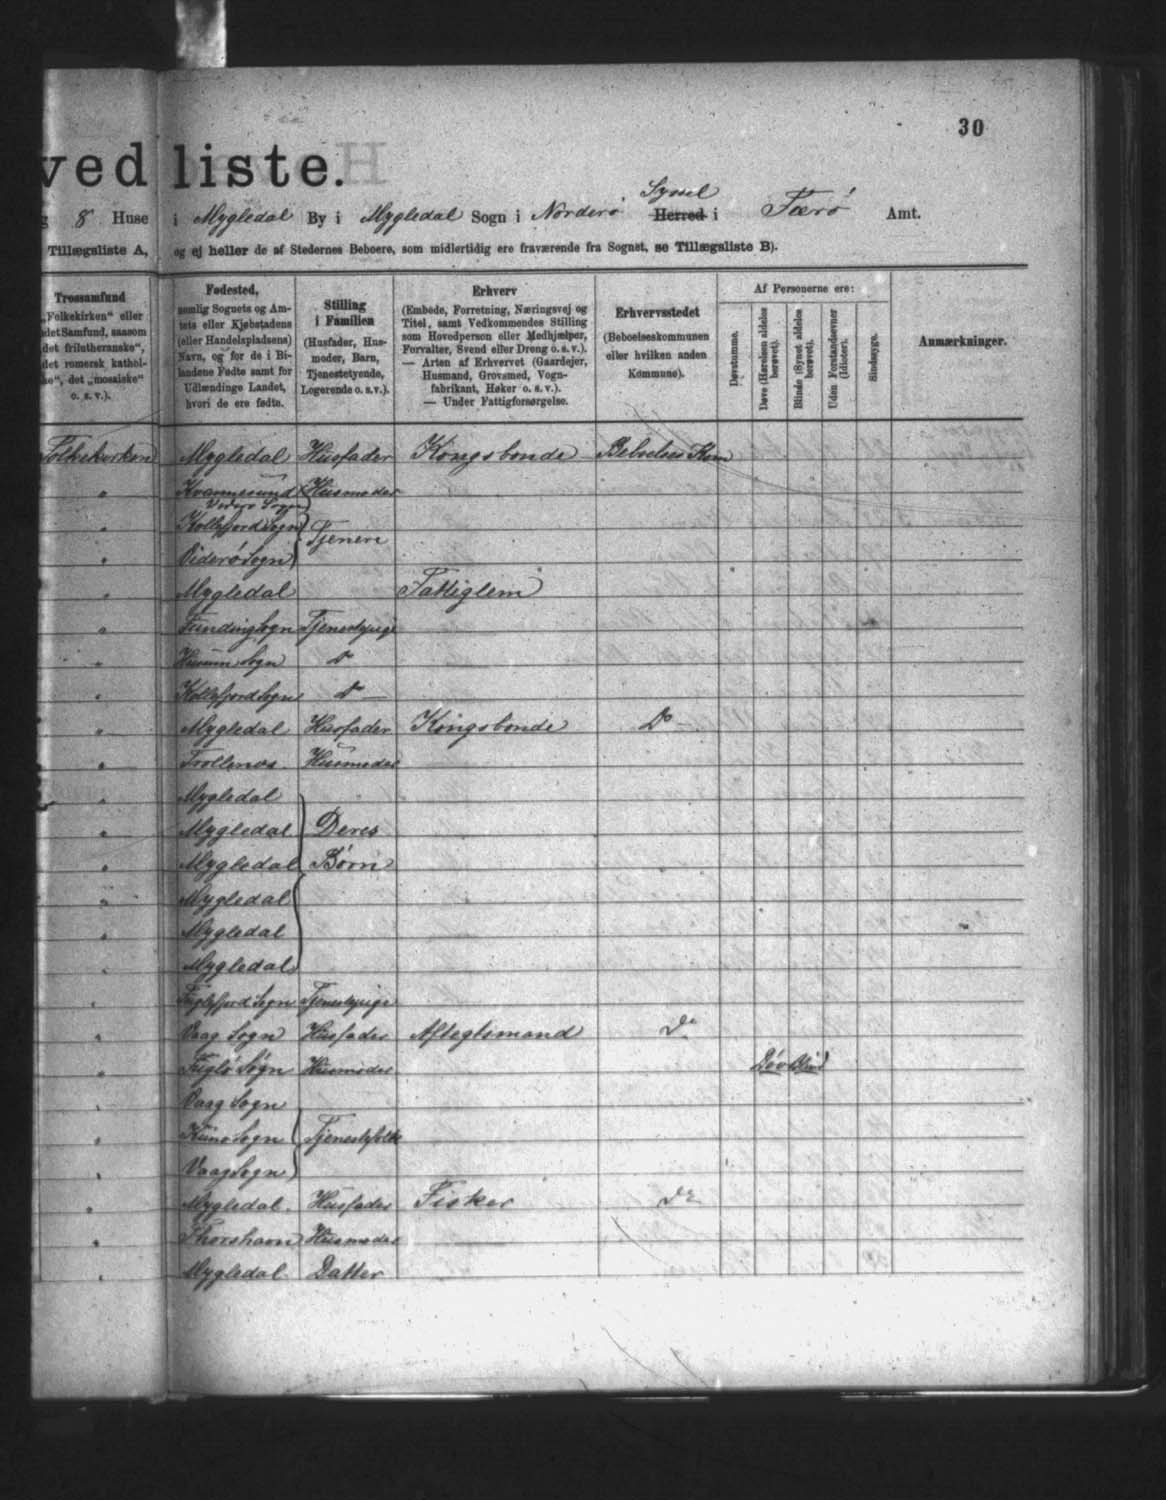 30
vedliste.
8 Huse i Mygledal By i Mygledal Sogn i Norderø Syssel Herred i Færø Amt.
Tillægsliste A, og ej heller de af Stedernes Beboere, som midlertidig ere fraværende fra Sognet, se Tillægsliste B).
Trossamfund
„Folkekirken" eller
det Samfund, saasom
det frilutheranske",
det romersk kathol-
ke", det „mosaiske"
o. s. v.).
Fødested,
nemlig Sognets og Am-
tets eller Kjøbstadens
(eller Handelspladsens)
Navn, og for de i Bi-
landene Fødte samt for
Udlændinge Landet,
hvori de ere fødte.
Stilling
i Familien
(Husfader, Hus-
moder, Barn,
Tjenestetyende,
Logerende o. s. v.).
Erhverv
(Embede, Forretning, Næringsvej og
Titel, samt Vedkommendes Stilling
som Hovedperson eller Medhjælper,
Forvalter, Svend eller Dreng o. s. v.).
— Arten af Erhvervet (Gaardejer,
Husmand, Grovsmed, Vogn-
fabrikant, Høker o. s. v.).
— Under Fattigforsørgelse.
Erhvervsstedet
(Beboelseskommunen
eller hvilken anden
Kommune).
Af Personerne ere:
Døvstumme.
Døve (Hørelsen aldeles
berøvet).
Blinde (Synet aldeles
berøvet).
Uden Forstandsevner
(Idioter).
Sindssyge.
Anmærkninger.
Folkekirken Mygledal Husfader Kongsbonde Beboelses Kom
" Kvannesund Husmoder
Viderø Sogn
" Kollefjord Sogn Tjenere
" Viderø Sogn
" Mygledal Fattiglem
" Funding Sogn Tjenestepige
" Husum Sogn Do
" Kollefjord Sogn Do
" Mygledal Husfader Kongsbonde Do
" Trollenæs Husmoder
" Mygledal
" Mygledal Deres
" Mygledal Børn
" Mygledal
" Mygledal
" Mygledal
" Fuglefjord Sogn Tjenestepige
" Vaag Sogn Husfader Aftegtsmand Do
" Fuglø Sogn Husmoder Døv Blind
" Vaag Sogn
" Kunø Sogn Tjenestefolk
" Vaag Sogn
" Mygledal. Husfader Fisker Do
" Thorshavn Husmoder
" Mygledal Datter